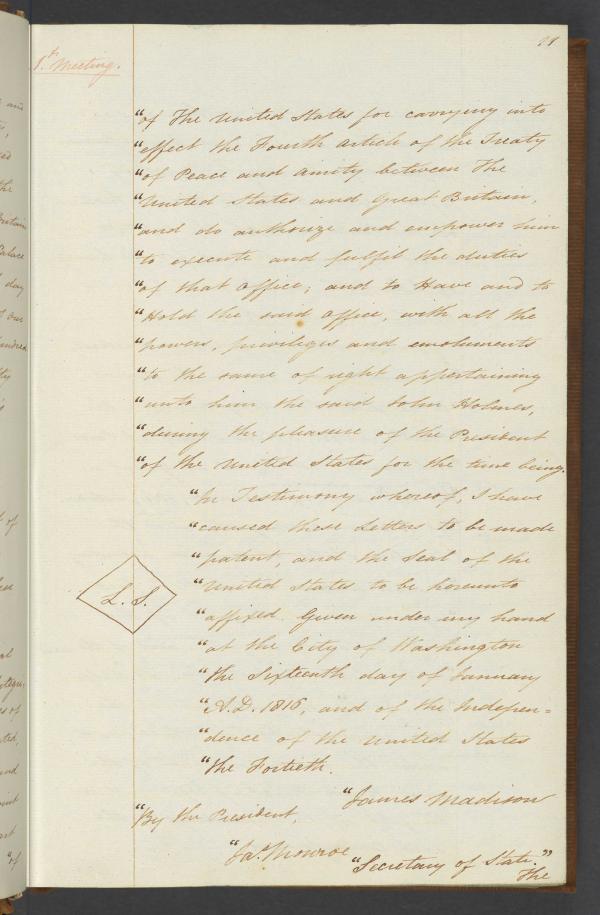 1st Meeting.
"of The United States for carrying into
"effect the Fourth Article of the Treaty
"of Peace and Amity between The
"United States and Great Britain,
"and do authorize and empower him
"to execute and fulfil the duties
"of that Office; and to Have and to
"Hold the said Office, with all the
"powers, privileges and emoluments
"to the same of right appertaining
"unto him the said John Holmes,
"during the pleasure of the President
"of the United States for the time being.
"In Testimony whereof, I have
"caused these Letters to be made
"patent, and the Seal of the
"United States to be hereunto
L. S.
"affixed. Given under my hand
"at the City of Washington
"the Sixteenth day of January
"A.D. 1816, and of the Indepen=
"dence of the United States
"the Fortieth.
"James Madison
"By the President,
"Jas. Monroe
"Secretary of State."
The